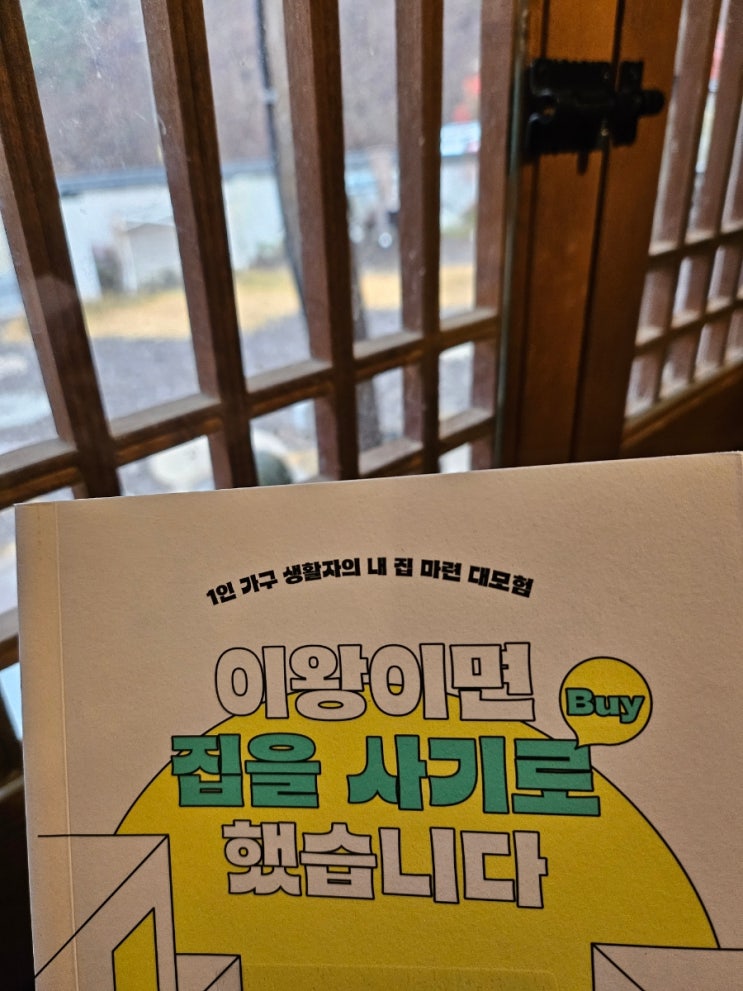 1인 가구 생활자의 내 집 마련 대모험
이왕이면
Buy
집을 사기로
했습니다